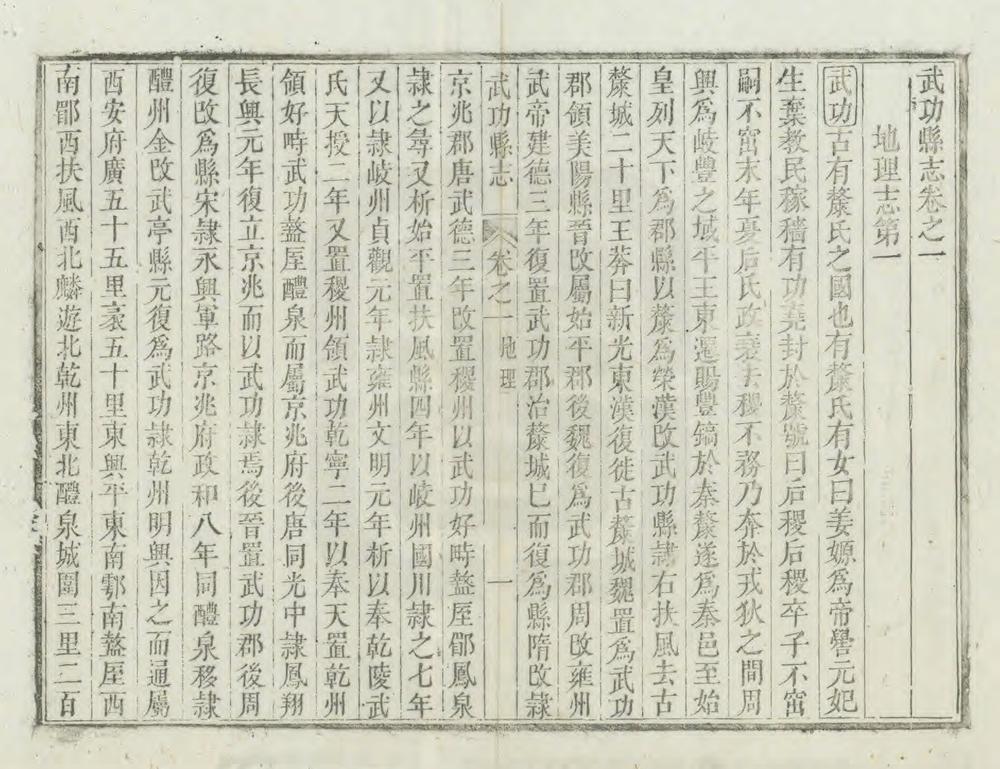 武功縣志卷之一
地理志第一
武功古有斄氏之國也有斄氏有女曰姜嫄爲帝嚳元妃
生棄教民稼穡有功堯封於斄號曰后稷后稷卒子不窋
嗣不窋末年夏后氏政衰去稷不務乃奔於戎狄之間周
興爲岐豐之域平王東遷賜豐鎬於秦斄遂爲秦邑至始
皇列天下爲郡縣以斄爲榮漢改武功縣隸右扶風去古
斄城二十里王莽曰新光東漢復徙古斄城魏置爲武功
郡領美陽縣晉改屬始平郡後魏復爲武功郡周改雍州
武帝建德三年復置武功郡治斄城已而復爲縣隋改隸
武功縣志 卷之一 地理 一
京兆郡唐武德三年改置稷州以武功好畤盩厔郿鳳泉
隸之尋又析始平置扶風縣四年以岐州國川隸之七年
又以隸岐州貞觀元年隸雍州文明元年析以奉乾陵武
氏天授二年又置稷州領武功乾寧二年以奉天置乾州
領好畤武功盩厔醴泉而屬京兆府後唐同光中隸鳳翔
長興元年復立京兆而以武功隸焉後晉置武功郡後周
復改爲縣宋隸永興軍路京兆府政和八年同醴泉移隸
醴州金改武亭縣元復爲武功隸乾州明興因之而通屬
西安府廣五十五里袤五十里東興平東南鄠南盩厔西
南郿西扶風西北麟遊北乾州東北醴泉城圍三里二百